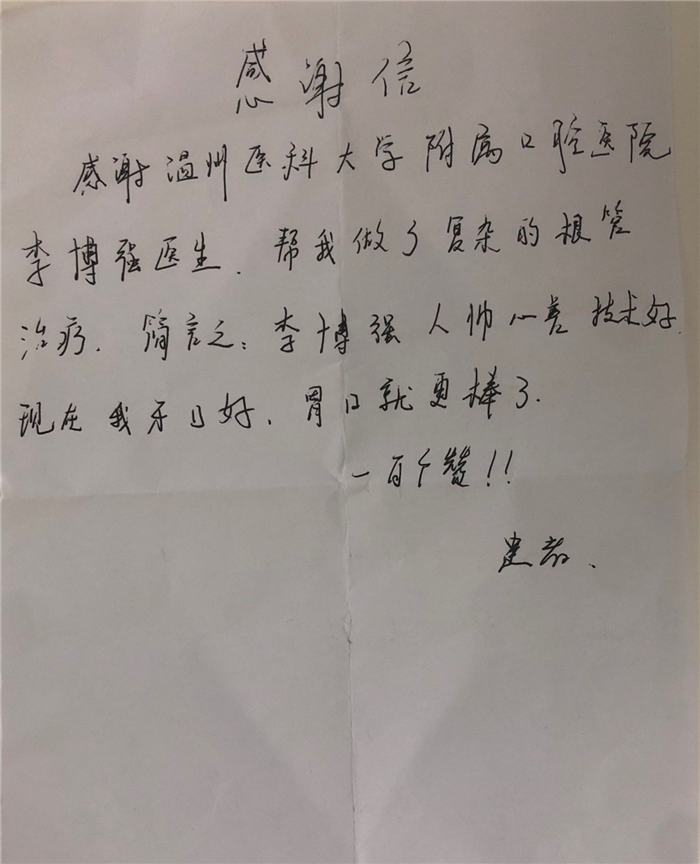 感谢信
感谢温州医科大学附属口腔医院
李博强医生. 帮我做了复杂的根管
治疗. 简言之: 李博强人帅心善技术好.
现在我牙口好. 胃口就更棒了.
一百个赞!!
患者.